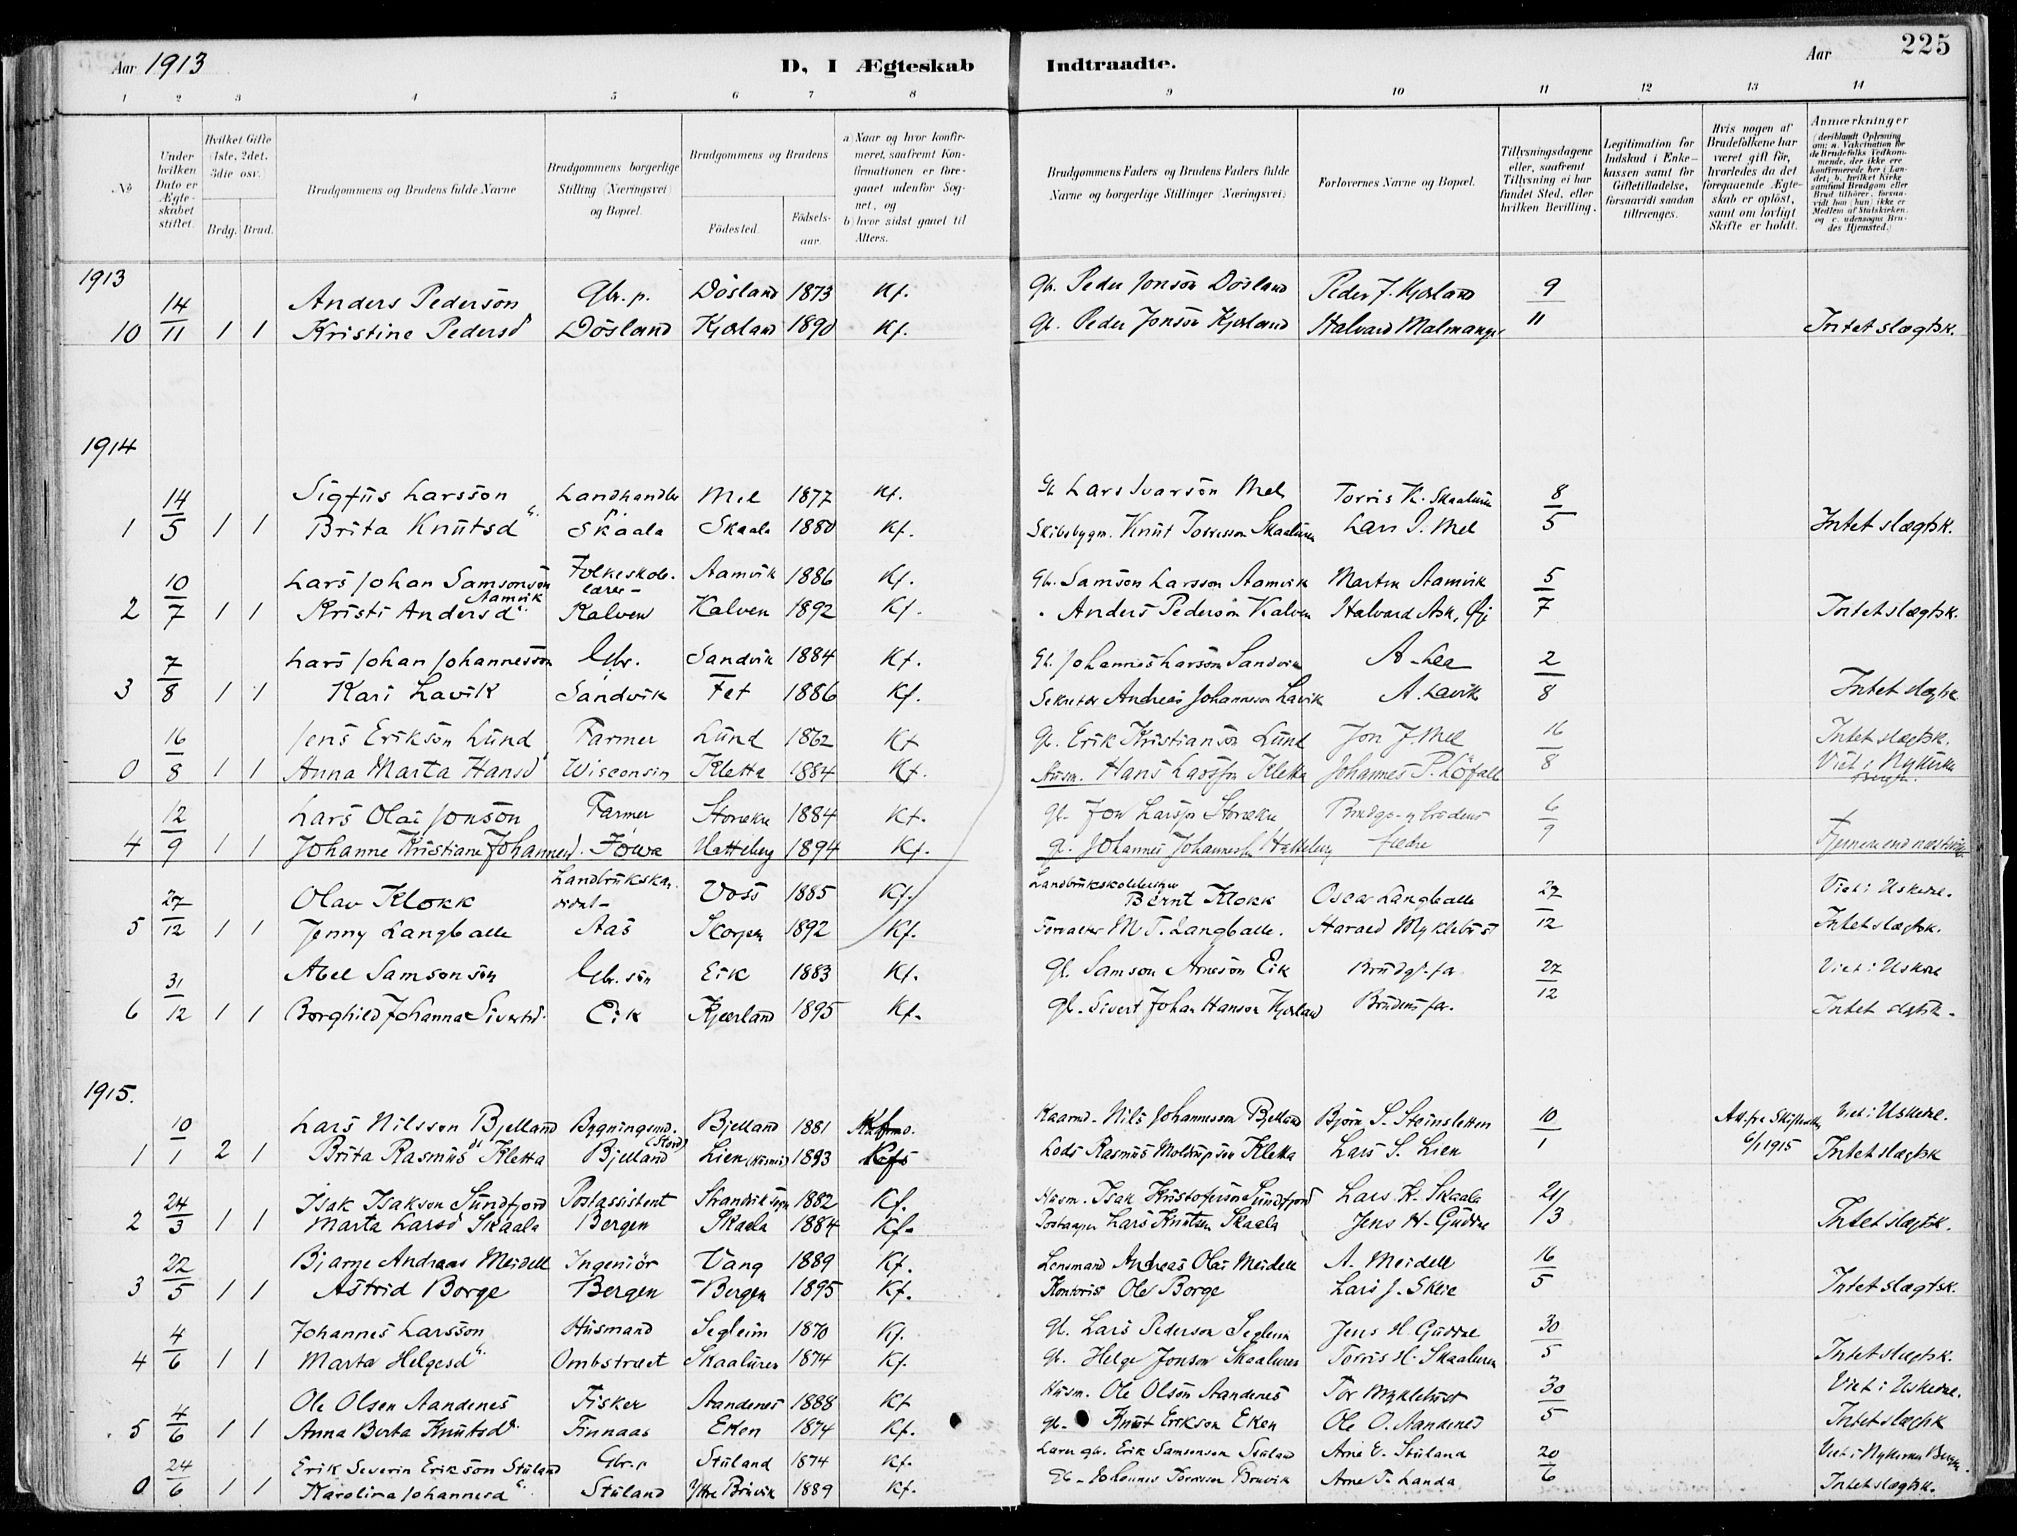 Aar 1913 D, I Ægteskab Indtraadte. Aar 225
1 2 3 4 5 6 7 8 9 10 11 12 13 14
No
Under hvilken Dato er Ægteskabet stiftet.
Hvilket Gifte (1ste, 2det, 3die osv.
Brdg. Brud.
Brudgommens og Brudens fulde Navne
Brudgommens borgerlige Stilling (Næringsvei) og Bopæl.
Brudgommens og Brudens
Fødested.
Fødselsaar.
a) Naar og hvor konfirmeret, saafremt Konfirmationen er foregaaet udenfor Sognet, og
b) hvor sidst gaaet til Alters.
Brudgommens Faders og Brudens Faders fulde Navne og borgerlige Stillinger (Næringsvei)
Forlovernes Navne og Bopæl.
Tillysningsdagene eller, saafremt Tillysning ei har fundet Sted, efter hvilken Bevilling.
Legitimation for Indskud i Enkekassen samt for Giftetilladelse, forsaavidt saadan tiltrænges.
Hvis nogen af Brudefolkene har været gift før, hvorledes da det foregaaende Ægteskab er opløst, samt om lovligt Skifte er holdt.
Anmærkninger (deriblandt Oplysning om: a. Vakcination for de Brudefolks Vedkommende, der ikke ere konfirmerede her i Landet, b. hvilket Kirkesamfund Brudgom eller Brud tilhører, forsaavidt han (hun) ikke er Medlem af Statskirken, og c. udensogns Brudes Hjemsted.)
1913
14 Anders Pederson Gbr. p. Døsland 1873 Kf. Gb. Peder Jonsøn Døsland Peder J. Kjærland 9
10 11 1 1 Kristine Pedersd Døsland Kjærland 1890 Kf. Gb. Peder Jonsøn Kjærland Halvard Malmanger 11 Intet slægtsk.
1914
14 Sigfus Larsson Landhandler Mel 1877 Kf. Gb Lars Ivarsøn Mel Torris K. Skaaluren 8
1 5 1 1 Brita Knutsd Skaala Skaala 1880 Kf. Skibsbygm. Knut Torresson Skaaluren Lars I. Mel 5 Intet slægtsk.
10 Lars Johan Samsonsøn Aamvik Folkeskolelærer Aamvik 1886 Kf. Gb. Samson Larsson Aamvik Martin Aamvik 5
2 7 1 1 Kristi Andersd Kalven Kalven 1892 Kf. Anders Pedersøn Kalven Halvard Ask, 7 Intet slægtsk.
7 Lars Johan Johannesson Gbr. Sandvik 1884 Kf. Gb. Johannes Larsøn Sandvik A. Lea 2
3 8 1 1 Kari Lavik Sandvik Fet 1886 Kf. Sekretær Andreas Johannesson Lavik A. Lavik 8 Intet slægtsk.
16 Jens Erikson Lund Farmer Lund 1862 Kf Gb. Erik Kristianson Lund Jon J. Mel 16 Intet slægtsk.
0 8 1 1 Anna Marta Hansd Wisconsin Kletta 1884 Kf. Husm. Hans Larsson Kletta Johannes P. Løfall 8 Viet i Nykirken Bergen.
12 Lars Olai Jonson Farmer Storækre 1884 Kf. Gb. Jon Larsson Storækre Brudgs. og brudens 6
4 9 1 1 Johanne Kristiane Johannesd. Iowa Hatteberg 1894 Kf. G. Johannes Johannessen Hatteberg fædre 9 Fjernere end næstsøsk.
27 Olav Klokk Landbrukskandidat Voss 1885 Kf. Landbrukskolebestyrer Bernt Klokk Oscar Langballe 27 Viet i Uskedal.
5 12 1 1 Jenny Langballe Aas Skorpen 1892 Kf. Forvalter M. T. Langballe. Harald Myklebust 12 Intet slægtsk.
31 Abel Samsonsøn Gbr. søn Eik 1883 Kf. Gb. Samson Arneson Eik Brudgs. far 27 Viet i Uskedal
6 12 1 1 Borghild Johanna Sivertsd. Eik Kjærland 1895 Kf. gb. Sivert Johan Hanson Kjærland Brudens far. 12 Intet slægtsk.
1915.
10 Lars Nilsson Bjelland Bygningssnd. Bjelland 1881 Kaarmd. Nils Johannesson Bjelland Bjørn S. Steinsletten 10 Att. fra Skifteretten Viet i Uskedal.
1 1 2 1 Brita Rasmusd Kletta Bjelland (Stord) Lien (Husnes) 1893 Lods Rasmus Moldrupsøn Kletta Lars S. Lien 1 6/1 1915 Intet slægtsk
24 Isak Isakson Sundfjord Postassistent Strandvik sogn 1882 Kf. Husm. Isak Kristoferson Sundfjord Lars K. Skaala 21
2 3 1 1 Marta Larsd Skaala Bergen Skaala 1884 Kf. Postaapner Lars Knutsen Skaala Jens H. Guddal 3 Intet slægtsk.
22 Bjarne Andreas Meidell Ingeniør Vang 1889 Kf. Lensmand Andreas Olai Meidell A. Meidell 16
3 5 1 1 Astrid Borge Bergen Bergen 1895 Kf. Kontorist Ole Borge Lars J. Skeie 5 Intet slægtsk.
4 Johannes Larsson Husmand Segleim 1870 Kf. Gb. Lars Pederson Segleim Jens H. Guddal 30
4 6 1 1 Marta Helgesd Ombstræet Skaaluren 1874 Kf. gb. Helge Jonson Skaaluren Torris H. Skaaluren 5 Intet slægtsk.
4 Ole Olsen Aandenes Fisker Aandenes 1888 Kf Husm. Ole Olsøn Aandenes Tor Myklebust 30 Viet i Uskedal.
5 6 1 1 Anna Berta Knutsd Finnaas Eken 1874 Kf. gb. Knut Erikson Eken Ole O. Aandenes 5 Intet slægtsk
24 Erik Severin Erikson Stuland Gbr. Stuland 1874 Kf. Lærer gb. Erik Samsonson Stuland Arne E. Stuland 20 Viet i Nykirken Bergen.
0 6 1 1 Karolina Johannesd Stuland Ytre Bruvik 1889 Kf. Gb. Johannes Torreson Bruvik Arne T. Landa 6 Intet slægtsk.